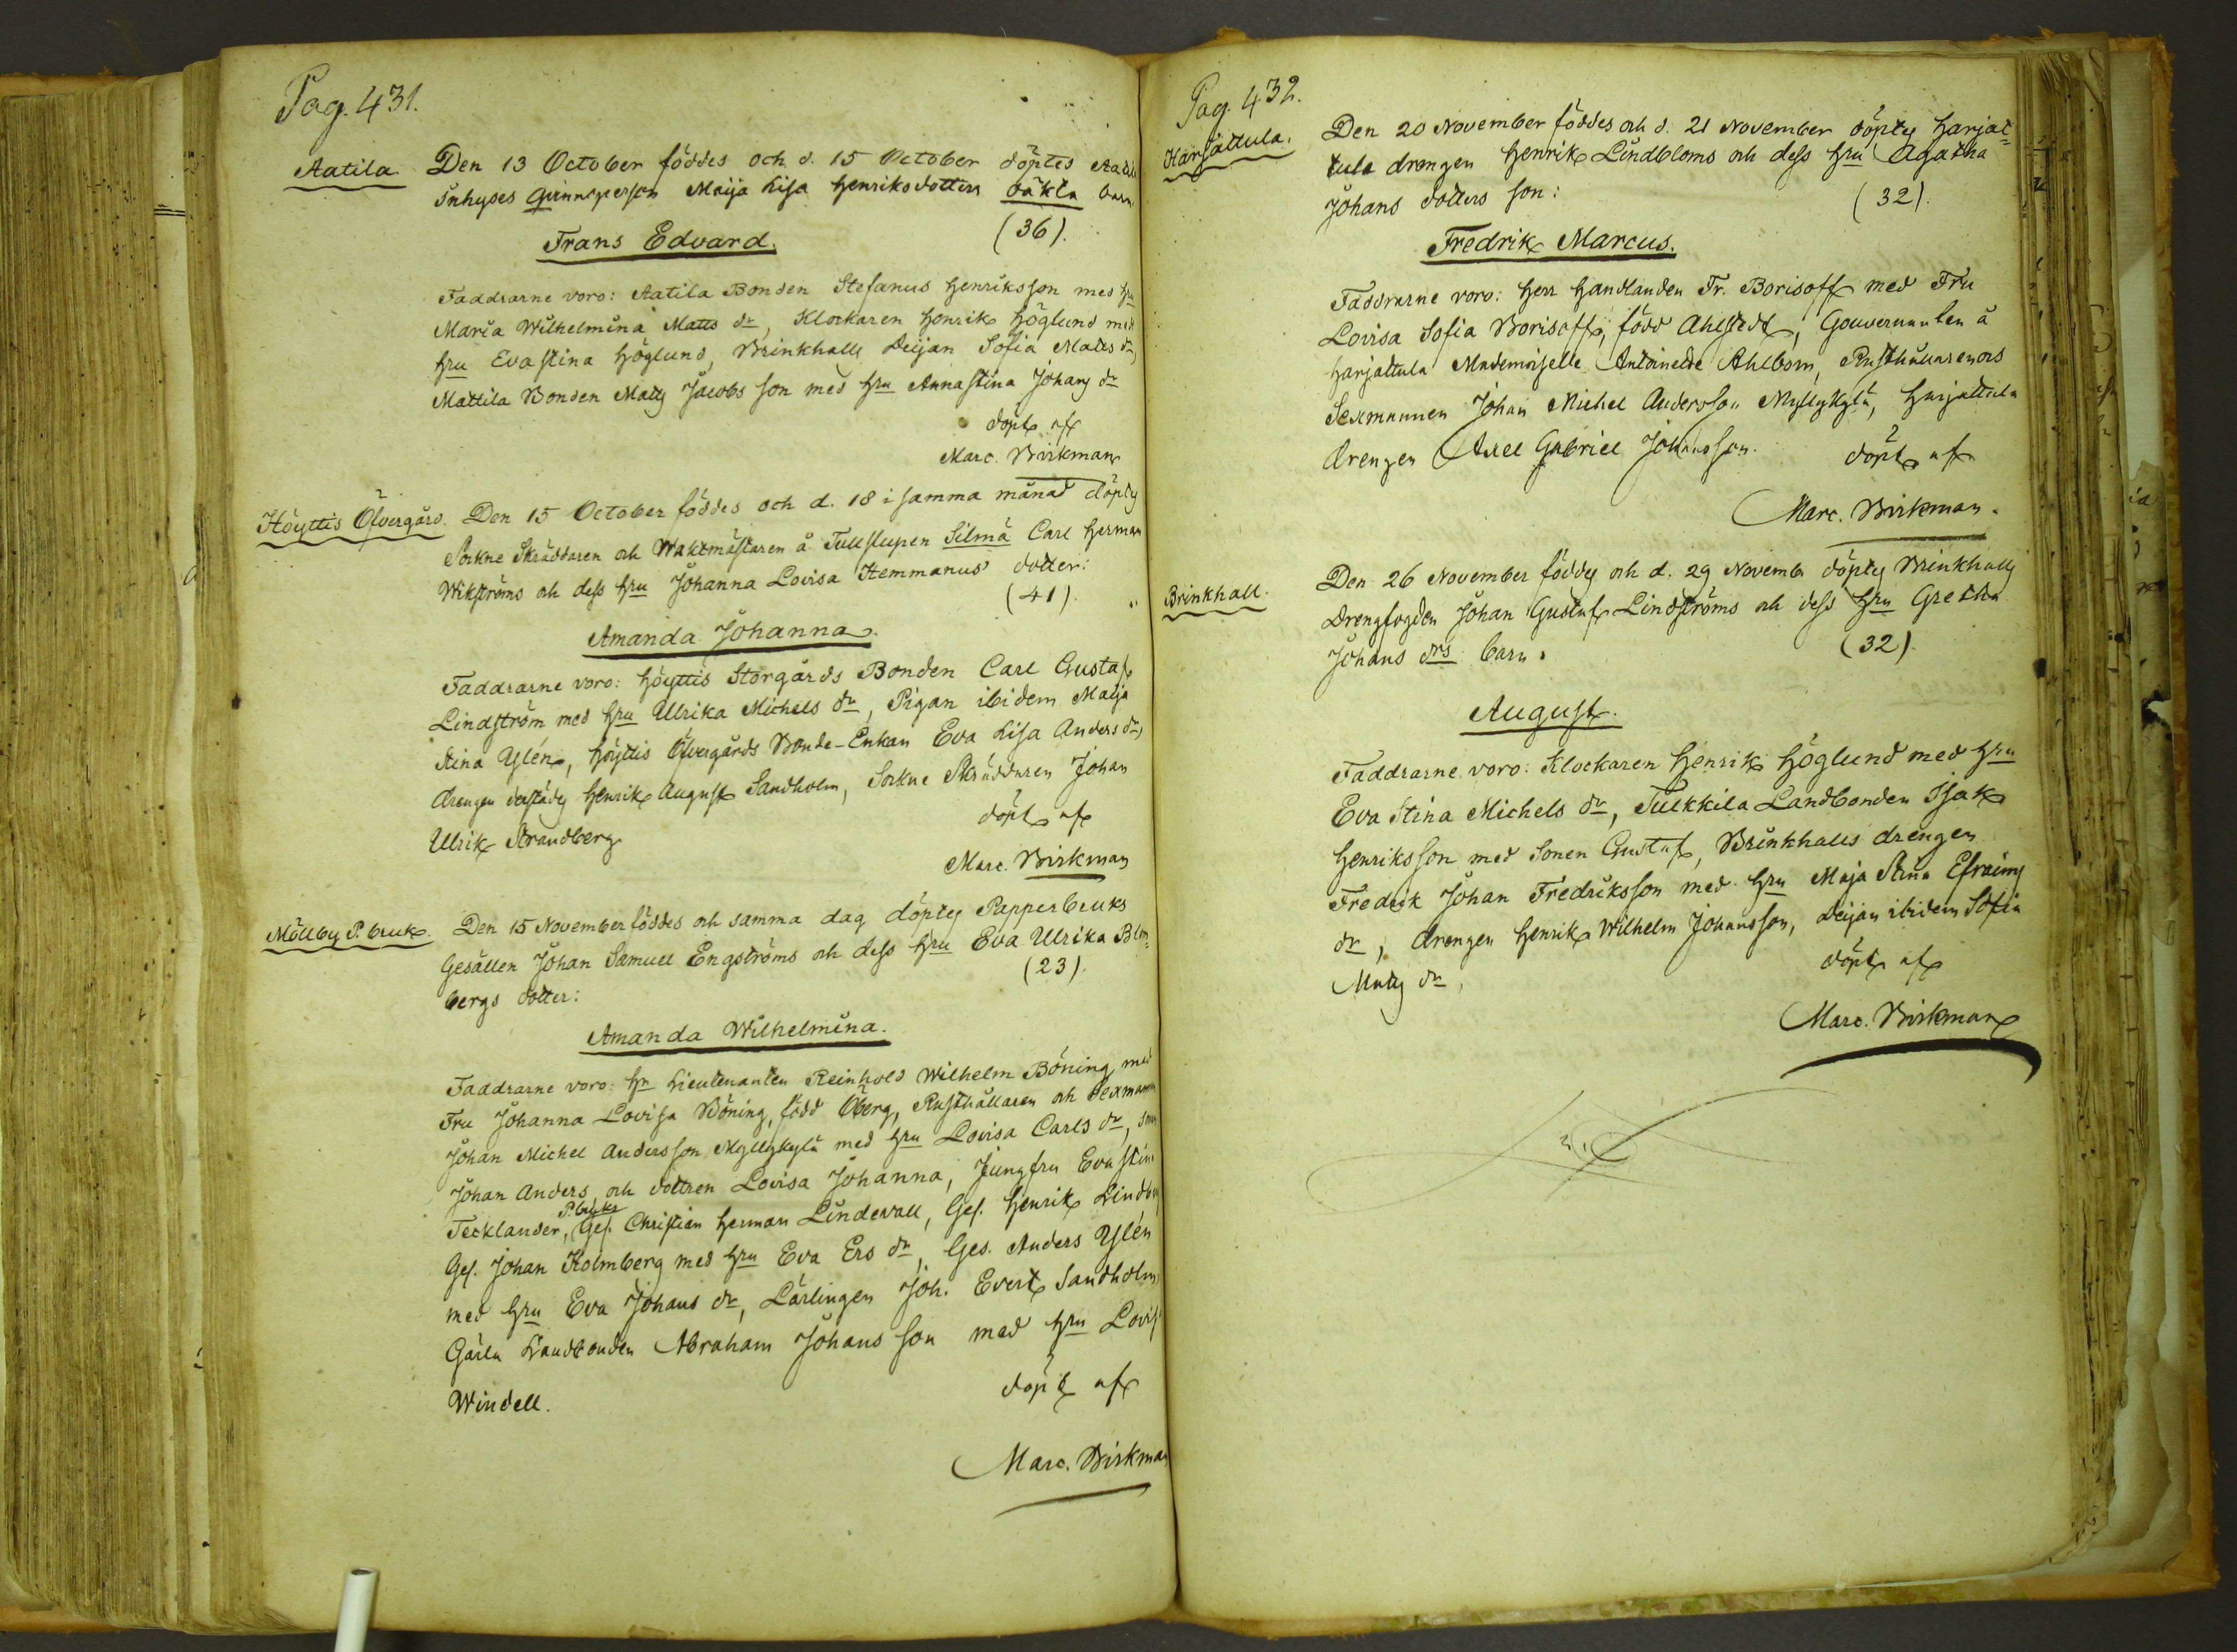 Pag. 431.
Aatila. Den 13 October föddes och d. 15 October döptes
Inhyses Qvinnsperson Maija Lisa Henriksdotters oäkta barn
(36).
Frans Edvard.
Faddrarne voro: Aatila Bonden Stefanus Henriksson med hru
Maria Wilhelmina Matts dr, Klockaren Henrik Höglund med
hru Eva Stina Höglund, Brinkhalls Deijan Sofia Matts dr,
Mattila Bonden Matts Jacobs son med hru Anna Stina Johans dr
döpt af
Marc. Birkman
Höyttis Öfvergård. Den 15 October föddes och d. 18 i samma månad döptes
Sockne Skräddaren och Waktmästaren å Tullslupen Silmä Carl Herman
Wikströms och dess hru Johanna Lovisa Hemmanus dotter:
(41).
Amanda Johanna.
Faddrarne voro: Höyttis Storgårds Bonden Carl Gustaf
Lindström med hru Ullrika Michels dr, Pigan ibidem Maija
Stina Ylén, Höyttis Öfvergårds Bonde-Enkan Eva Lisa Anders dr,
drengen derstädes Henrik August Sandholm, Sockne Skräddaren Johan
Ulrik Strandberg
döpt af
Marc. Birkman
Möllby P. bruk. Den 15 November föddes och samma dag döptes Pappersbruks
Gesällen Johan Samuel Engströms och dess hru Eva Ulrika Blom-
bergs dotter:
(23).
Amanda Wilhelmina.
Faddrarne voro: Hr Lieutenanten Reinhold Wilhelm Böning med
Fru Johanna Lovisa Böning, född Öberg, Rusthållaren och Sexmannen
Johan Michel Andersson Myllykylä med hru Lovisa Carls dr,
Johan Anders, och dottren Lovisa Johanna, Jungfru Eva Stina
P. bruks
Tecklander, Ges. Christian Herman Lindevall, Ges. Henrik
Ges. Johan Holmberg med hru Eva Ers dr, Ges. Anders Ylén
med hru Eva Johans dr, Lärlingen Joh. Evert Sandholm
Landbonden Abraham Johans son med hru Lovisa
Windell.
döpt af
Marc. Birkman
Pag. 432.
Harjattula. Den 20 November föddes och d. 21 November döptes Harjat-
tula drengen Henrik Lindbloms och dess hru Agatha
Johans dotters son:
(32).
Fredrik Marcus.
Faddrarne voro: Herr Handlanden Fr. Borisoff med Fru
Lovisa Sofia Borisoff, född Ahlstedt, Gouvernanten å
Harjattula Mademoiselle Antoinette Ahlbom, Rusthållaren och
Sexmannen Johan Michel Andersson Myllykylä, Harjattula
drengen Axel Gabriel Johansson.
döpt af
Marc. Birkman.
Brinkhall. Den 26 November föddes och d. 29 Novemb. döptes Brinkhalls
Drengfogden Johan Gustaf Lindströms och dess hru Gretha
Johans drs barn.
(32).
August.
Faddrarne voro: Klockaren Henrik Höglund med hru
Eva Stina Michels dr, Tulkkila Landbonden Isak
Henriksson med Sonen Gustaf, Brinkhalls drengen
Fredrik Johan Fredriksson med hru Maja Stina Efraims
dr, drengen Henrik Wilhelm Johansson, Deijan ibidem Sofia
Matts dr,
döpt af
Marc. Birkman